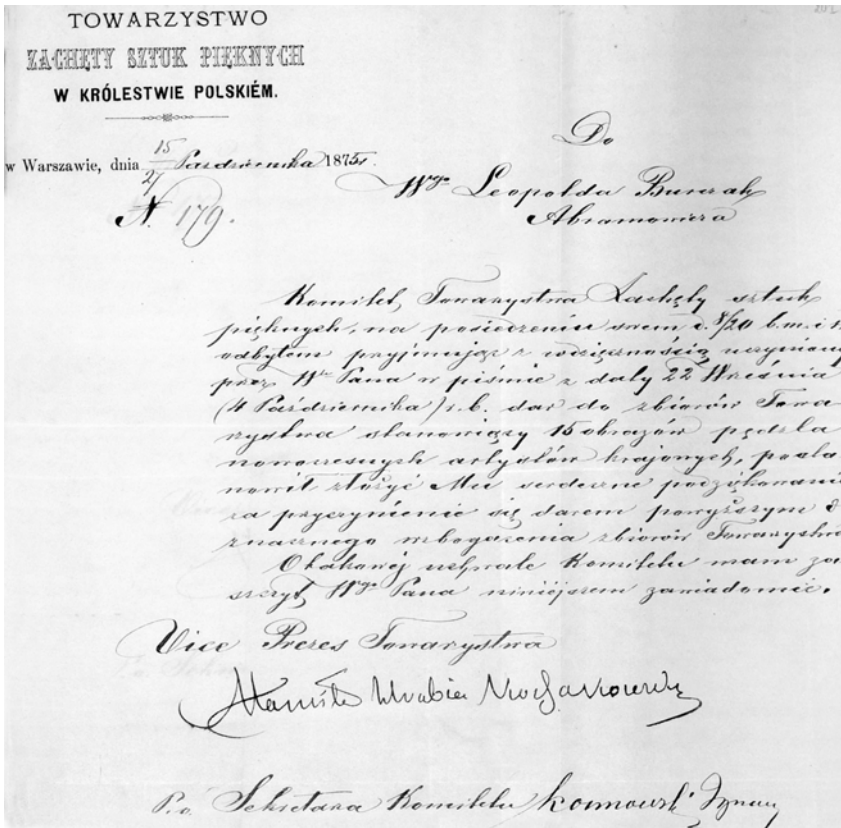 202
TOWARZYSTWO
ZACHĘTY SZTUK PIĘKNYCH
W KRÓLESTWIE POLSKIÉM.
w Warszawie, dnia 15/27 Października 1875 r.
N. 179.
Do
Wgo Leopolda Burczak
Abramowicza
Komitet Towarzystwa Zachęty sztuk
pięknych, na posiedzeniu swem d. 8/20 b.m. i r.
odbytem przyjmując z wdzięcznością uczyniony
przez Wgo Pana w piśmie z daty 22 Września
(4 Października) r.b. dar do zbiorów Towa
rzystwa stanowiący 15 obrazów pędzla
nowoczesnych artystów krajowych, posta
nowił złożyć Mu serdeczne podziękowanie
za przyczynienie się darem powyższym d
znacznego wzbogacenia zbiorów Towarzystwa
O takowéj uchwale Komitetu mam za
szczyt Wgo Pana niniejszem zawiadomić.
Vice Prezes Towarzystwa
Hrabia
P.o. Sekretarza Komitetu